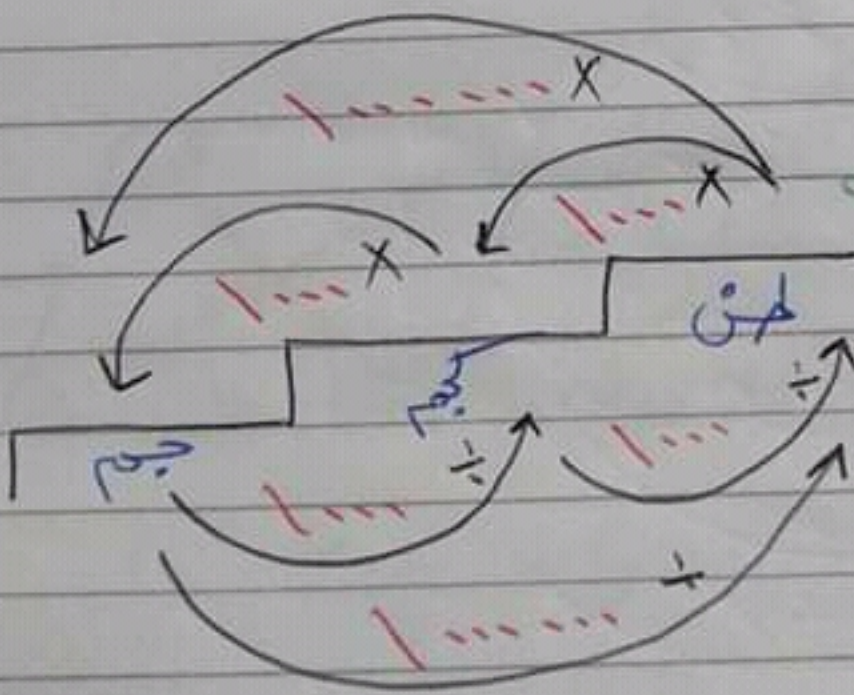 × ١٠٠٠٠٠٠
× ١٠٠٠
× ١٠٠٠
طن
كجم
جم
÷ ١٠٠٠
÷ ١٠٠٠
÷ ١٠٠٠٠٠٠